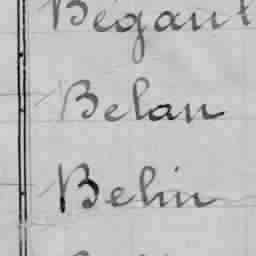 Bégault
Belan
Belin